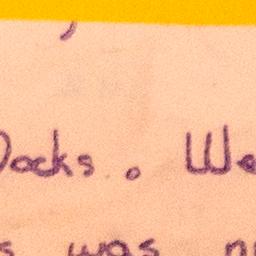 Docks. We
was